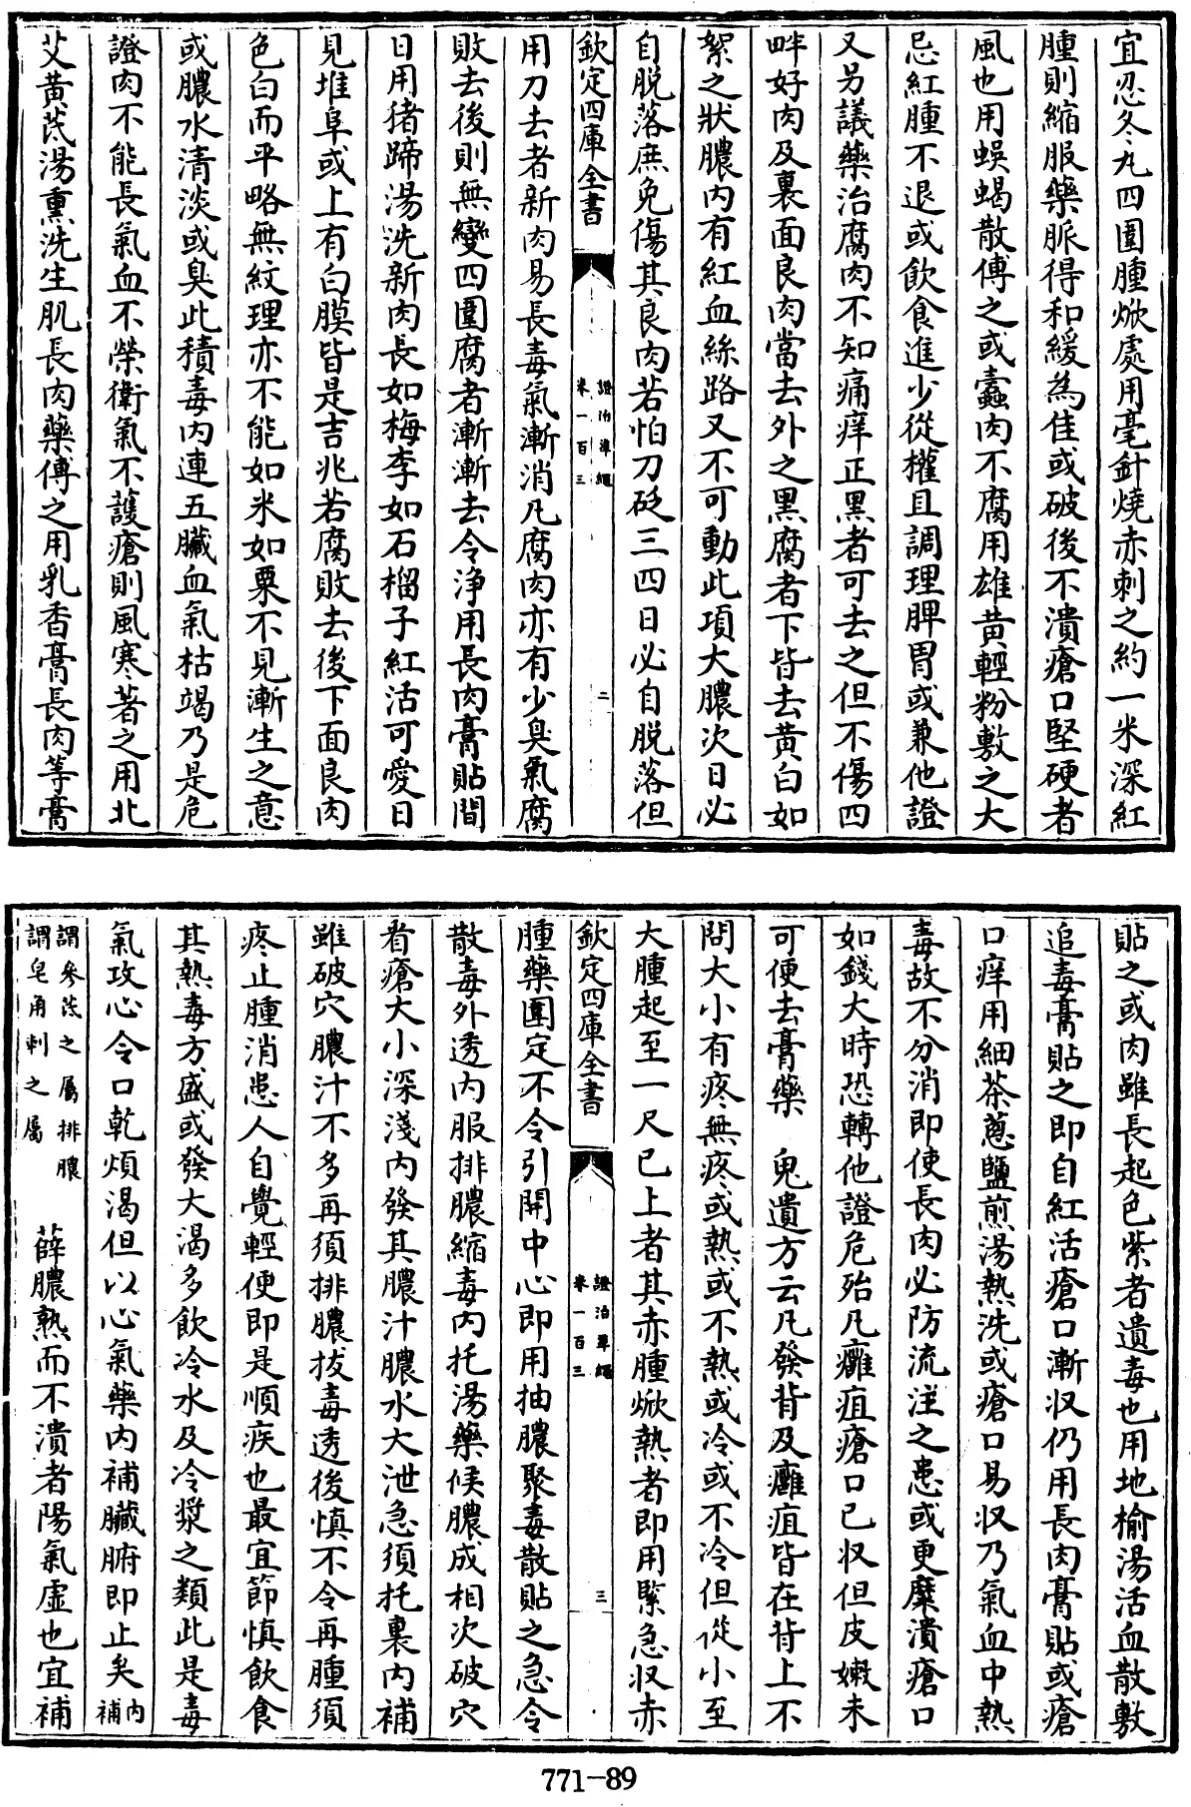 宜忍冬丸四圍腫焮處用毫針燒赤刺之約一米深紅
腫則縮服藥脈得和緩為佳或破後不潰瘡口堅硬者
風也用蜈蝎散傅之或蠹肉不腐用雄黄輕粉敷之大
忌紅腫不退或飲食進少從權且調理脾胃或兼他證
又另議藥治腐肉不知痛痒正黒者可去之但不傷四
畔好肉及裏面良肉當去外之黒腐者下皆去黄白如
絮之狀膿内有紅血絲路又不可動此項大膿次日必
自脱落庶免傷其良肉若怕刀砭三四日必自脱落但
欽定四庫全書
證治準繩
卷一百三
二
用刀去者新肉易長毒氣漸消凡腐肉亦有少臭氣腐
敗去後則無變四圍腐者漸漸去令浄用長肉膏貼間
日用猪蹄湯洗新肉長如梅李如石榴子紅活可愛日
見堆阜或上有白膜皆是吉兆若腐敗去後下面良肉
色白而平略無紋理亦不能如米如粟不見漸生之意
或膿水清淡或臭此積毒内連五臟血氣枯竭乃是危
證肉不能長氣血不榮衛氣不護瘡則風寒著之用北
艾黄茋湯熏洗生肌長肉藥傅之用乳香膏長肉等膏
貼之或肉雖長起色紫者遺毒也用地榆湯活血散敷
追毒膏貼之即自紅活瘡口漸収仍用長肉膏貼或瘡
口痒用細茶蔥鹽煎湯熱洗或瘡口易収乃氣血中熱
毒故不分消即使長肉必防流注之患或更糜潰瘡口
如錢大時恐轉他證危殆凡癰疽瘡口已収但皮嫩未
可便去膏藥 鬼遺方云凡發背及癰疽皆在背上不
問大小有疼無疼或熱或不熱或冷或不冷但從小至
大腫起至一尺已上者其赤腫焮熱者即用緊急収赤
欽定四庫全書
證治準繩
卷一百三
三
腫藥圍定不令引開中心即用抽膿聚毒散貼之急令
散毒外透内服排膿縮毒内托湯藥候膿成相次破穴
看瘡大小深淺内發其膿汁膿水大泄急須托裏内補
雖破穴膿汁不多再須排膿拔毒透後慎不令再腫須
疼止腫消患人自覺輕便即是順疾也最宜節慎飲食
其熱毒方盛或發大渴多飲冷水及冷漿之類此是毒
氣攻心令口乾煩渴但以心氣藥内補臟腑即止矣内
補
謂參茋之屬排膿
謂皂角刺之屬
薛膿熟而不潰者陽氣虛也宜補
771-89